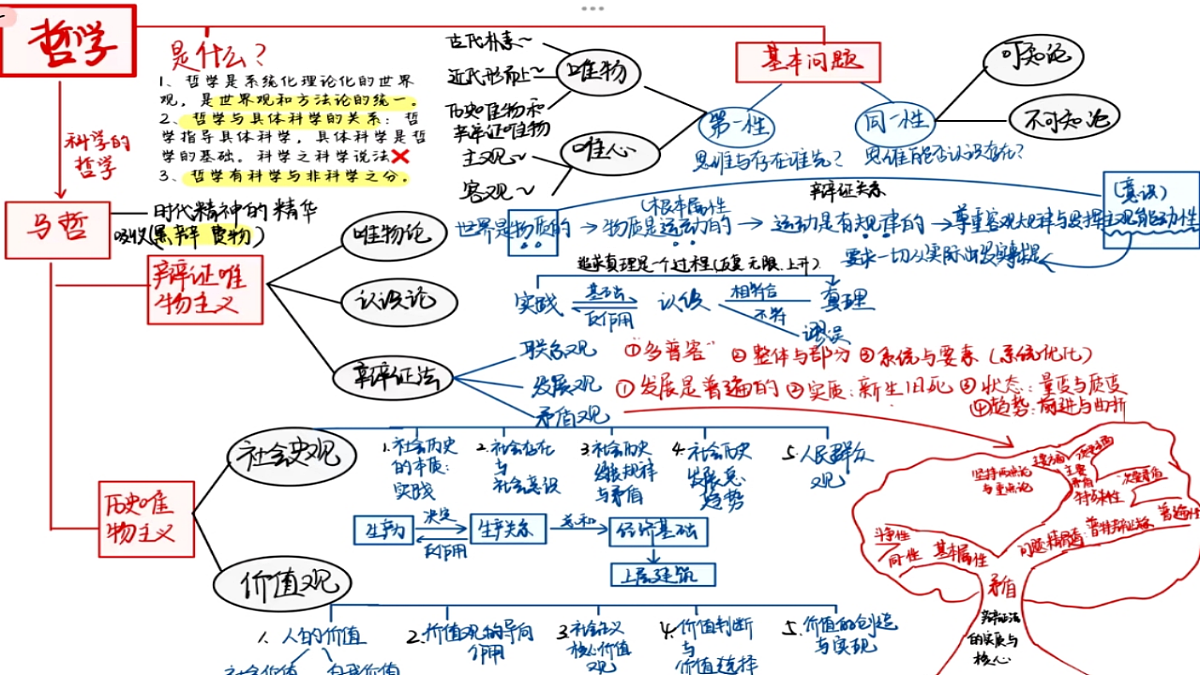 哲学
是什么？
1、哲学是系统化理论化的世界
观，是世界观和方法论的统一。
2、哲学与具体科学的关系：哲
学指导具体科学，具体科学是哲
学的基础。科学之科学说法❌
3、哲学有科学与非科学之分。
科学的
哲学
基本问题
第一性
同一性
思维与存在谁先？
思维能否认识存在？
可知论
不可知论
唯物
古代朴素~
近代形而上~
历史唯物和
辩证唯物
唯心
主观~
客观~
马哲
时代精神的精华
吸收(黑辩 费物)
辩证唯
物主义
唯物论
世界是物质的→物质是运动的→运动是有规律的→尊重客观规律与发挥主观能动性
(根本属性
辩证关系
(意识)
要求一切从实际出发实事求是
认识论
追求真理是一个过程(反复 无限 上升)
实践
基础
反作用
认识
相符合
不符
真理
谬误
辩证法
联系观 ①"多普客" ②整体与部分 ③系统与要素(系统优化)
发展观 ①发展是普遍的 ②实质：新生旧死 ③状态：量变与质变
④趋势：前进与曲折
矛盾观
历史唯
物主义
社会史观
1.社会历史
的本质：
实践
2.社会存在
与
社会意识
3.社会历史
发展规律
与矛盾
4.社会历史
发展总
趋势
5.人民群众
观
生产力
决定
反作用
生产关系
总和
经济基础
上层建筑
价值观
1.人的价值
社会价值 自我价值
2.价值观的导向
作用
3.社会主义
核心价值
观
4.价值判断
与
价值选择
5.价值的创造
与实现
坚持两点论
与重点论
主要
矛盾
次要矛盾
特殊性
普遍性
斗争性
同一性
基本属性
矛盾
辩证法
的实质与
核心